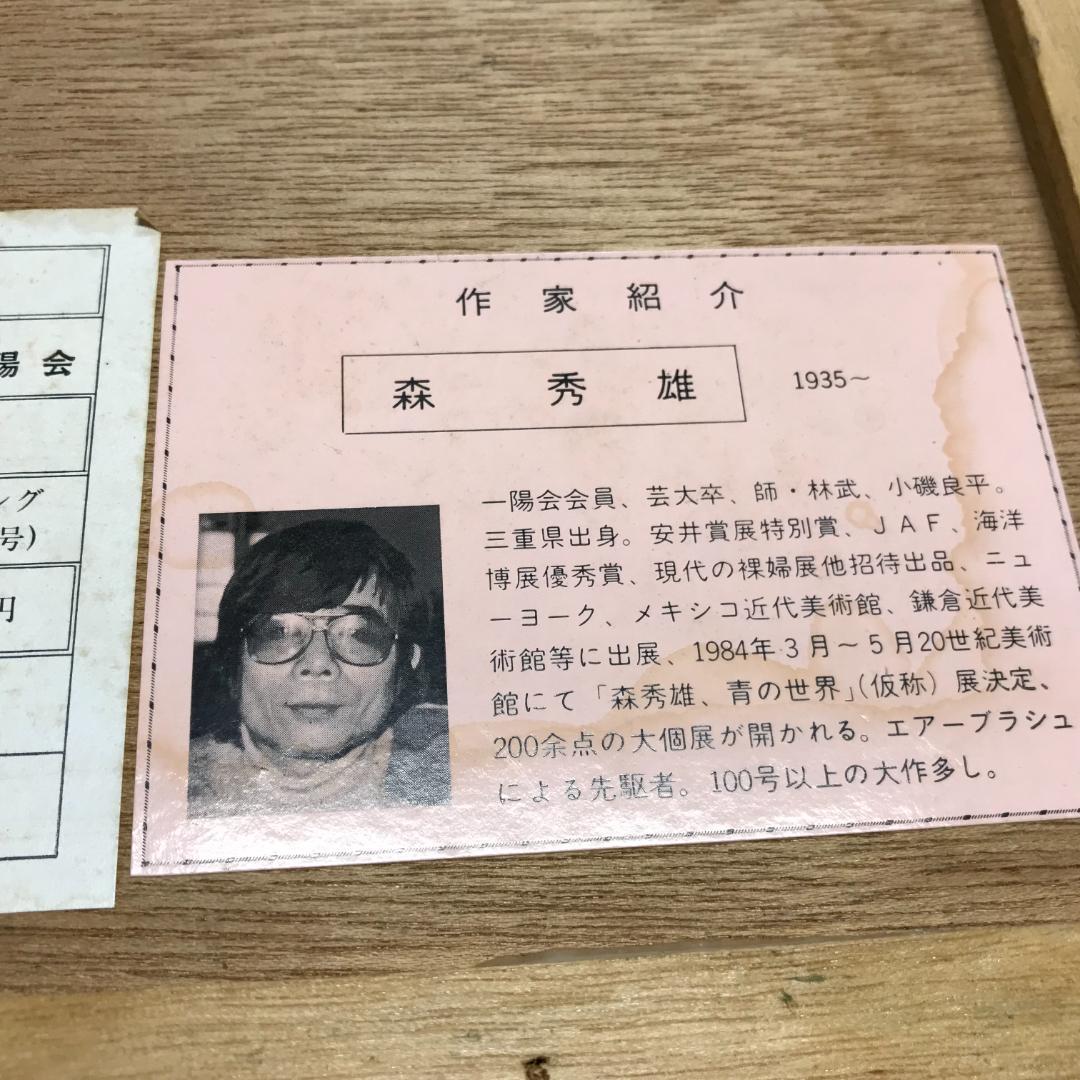 陽会
ング
号)
円
作家紹介
森 秀雄 1935~
一陽会会員、芸大卒、師・林武、小磯良平。
三重県出身。安井賞展特別賞、JAF、海洋
博展優秀賞、現代の裸婦展他招待出品、ニュ
ーヨーク、メキシコ近代美術館、鎌倉近代美
術館等に出展、1984年3月~5月20世紀美術
館にて「森秀雄、青の世界」(仮称)展決定、
200余点の大個展が開かれる。エアーブラシュ
による先駆者。100号以上の大作多し。